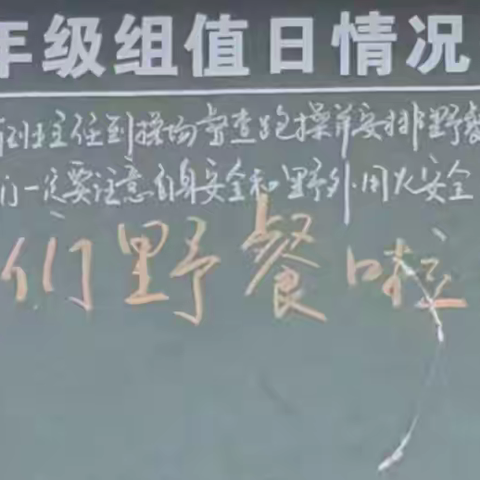 年级组值日情况
班主任到操场督查跑操并安排野餐
们一定要注意自身安全和野外用火安全
们野餐啦